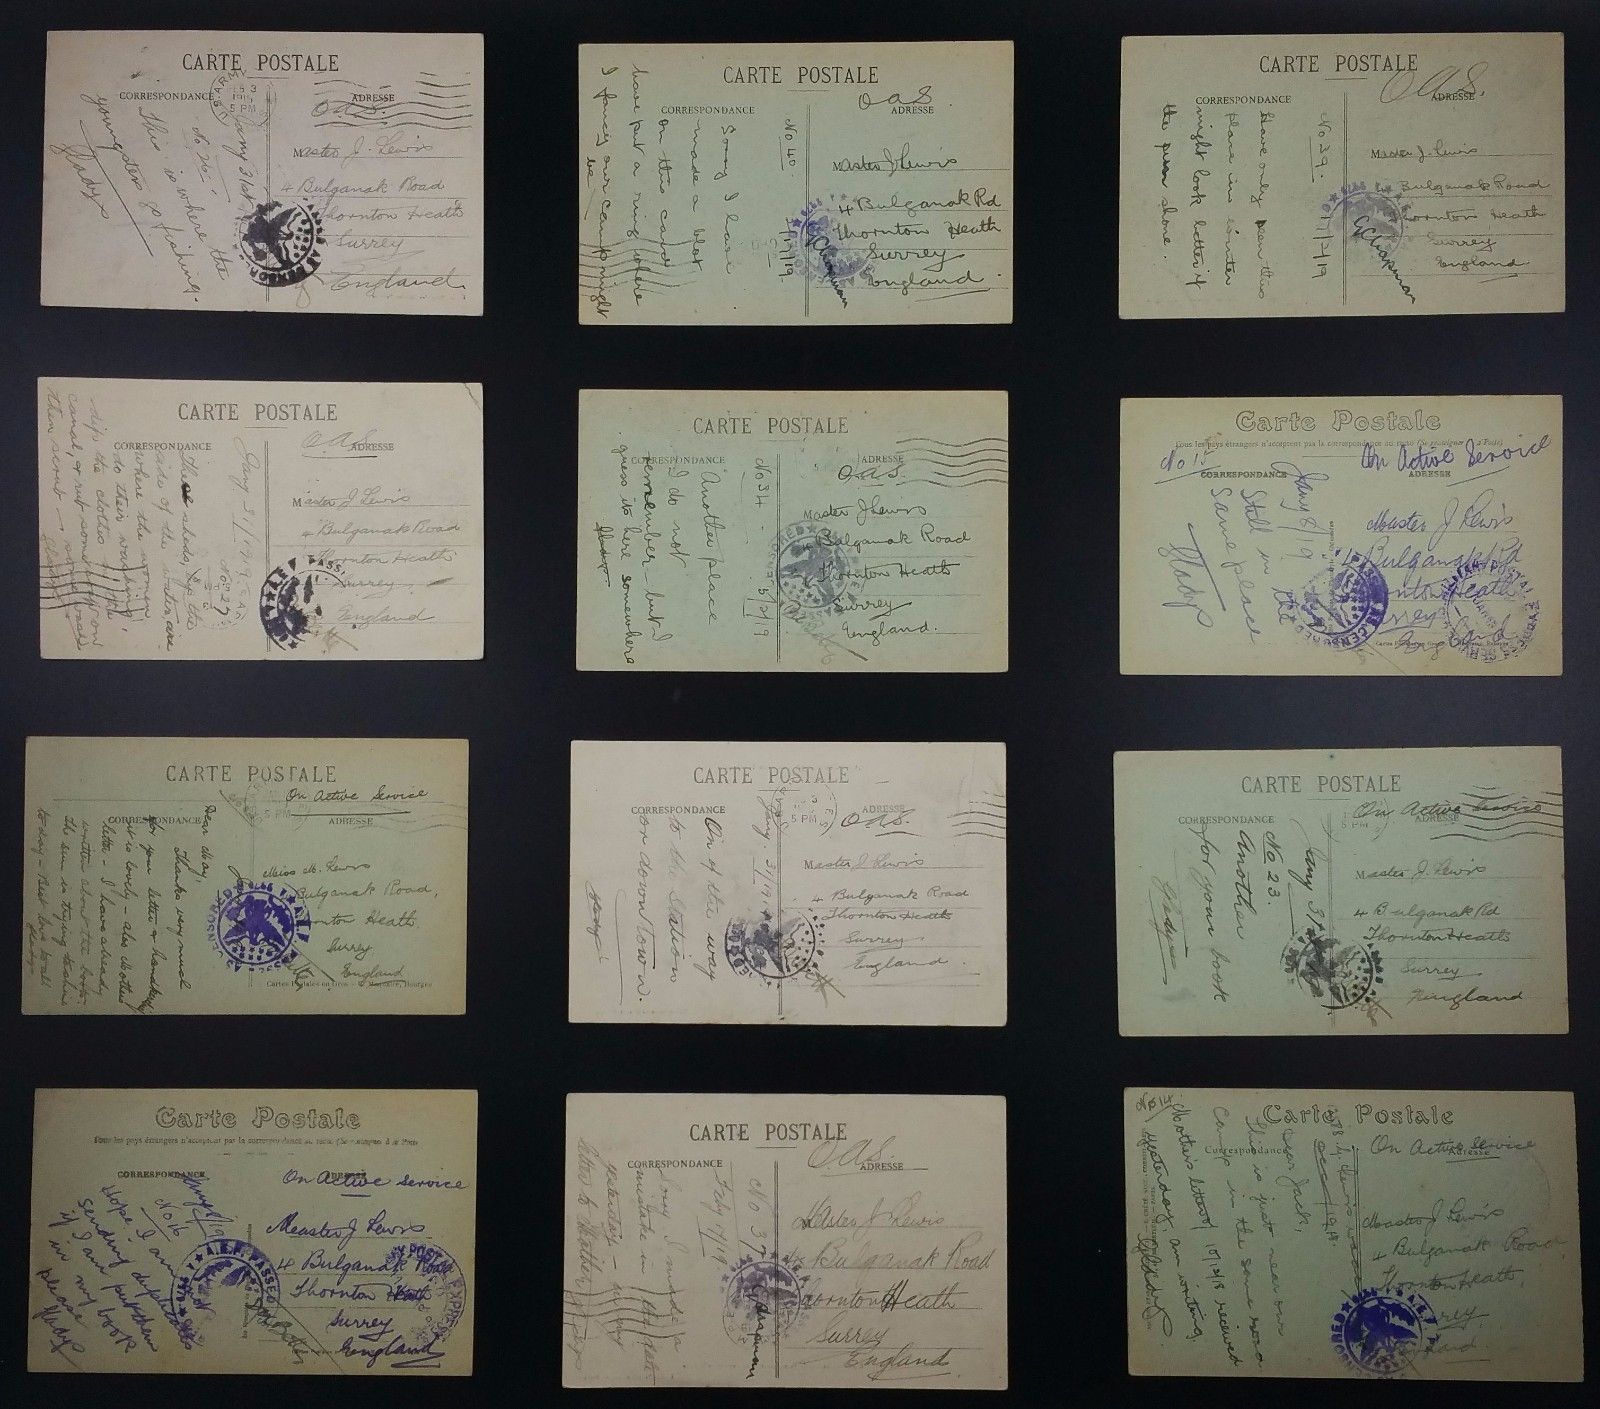 CARTE POSTALE
CORRESPONDANCE
ADRESSE
OAS.
Jany 31st
No 26.
This is where the
youngsters go fishing.
Gladys
Master J. Lewis
4 Bulganak Road
Thornton Heath
Surrey
England
CARTE POSTALE
CORRESPONDANCE
OAS.
ADRESSE
No 40.
Sorry I have
made a blot
on this card
have put a ring where
I fancy our camp might
be
Master J Lewis
4 Bulganak Rd
Thornton Heath
Surrey
England
G Chapman
CARTE POSTALE
CORRESPONDANCE
OAS.
ADRESSE
No 39.
17/2/19
Have only seen this
place in winter
might look better if
the sun shone.
Master J. Lewis
4 Bulganak Road
Thornton Heath
Surrey
England
G Chapman
CARTE POSTALE
CORRESPONDANCE
OAS
ADRESSE
Jany 31/19
No 27
These sheds, by the
side of the water are
where the women
do their washing,
dip the clothes in the
canal, or rub some soap on
then scrub
Master J Lewis
4 Bulganak Road
Thornton Heath
Surrey
England
CARTE POSTALE
CORRESPONDANCE
ADRESSE
OAS.
No 34.
5/2/19
Another place
I do not
remember - but I
guess it is here somewhere
Gladys
Master J Lewis
4 Bulganak Road
Thornton Heath
Surrey
England.
Carte Postale
Tous les pays étrangers n'acceptent pas la correspondance au recto (Se renseigner à la Poste)
No 15
On Active Service
CORRESPONDANCE
ADRESSE
Jany 8/19
Still in the
same place
Gladys
Master J Lewis
4 Bulganak Rd
Thornton Heath
Surrey
England
CARTE POSTALE
On Active Service
CORRESPONDANCE
ADRESSE
Dear May,
Thanks very much
for your letter & handkfs
it is lovely - also Mothers
letter - I have already
written about the book.
The sun is trying to shine
to day - Best love to all
Gladys
Miss M. Lewis
4 Bulganak Road,
Thornton Heath,
Surrey
England
Cartes Postales en Gros
Bourges
CARTE POSTALE
CORRESPONDANCE
ADRESSE
OAS.
Jany. 31/19
On of the way
to the Station
on down town.
Gladys
Master J Lewis
4 Bulganak Road
Thornton Heath
Surrey
England
CARTE POSTALE
On Active Service
CORRESPONDANCE
ADRESSE
Jany 3
No 23.
Another
for your book
Gladys
Master J. Lewis
4 Bulganak Rd
Thornton Heath
Surrey
England
Carte Postale
Tous les pays étrangers n'acceptent pas la correspondance au recto (Se renseigner à la Poste)
CORRESPONDANCE
ADRESSE
On Active Service
Jany 8/19
No 16
Hope I am not
sending duplicates
I am putting them
in my book
if in please
Gladys
Master J Lewis
4 Bulganak Road
Thornton Heath
Surrey
England
A.E.F. PASSED
CARTE POSTALE
OAS.
CORRESPONDANCE
ADRESSE
No 37
Feby 17/19
Sorry I made a
mistake
yesterday
letter to Mother
Gladys
Master J Lewis
4 Bulganak Road
Thornton Heath
Surrey
England
G Chapman
No 14
Carte Postale
Correspondance
On Active Service
Adresse
Dear Jack,
This is just near our
Camp in the same road
Mother's letter 10/12/18 received
yesterday, am writing
Gladys
Master J. Lewis
4 Bulganak Road,
Thornton Heath,
Surrey
England.